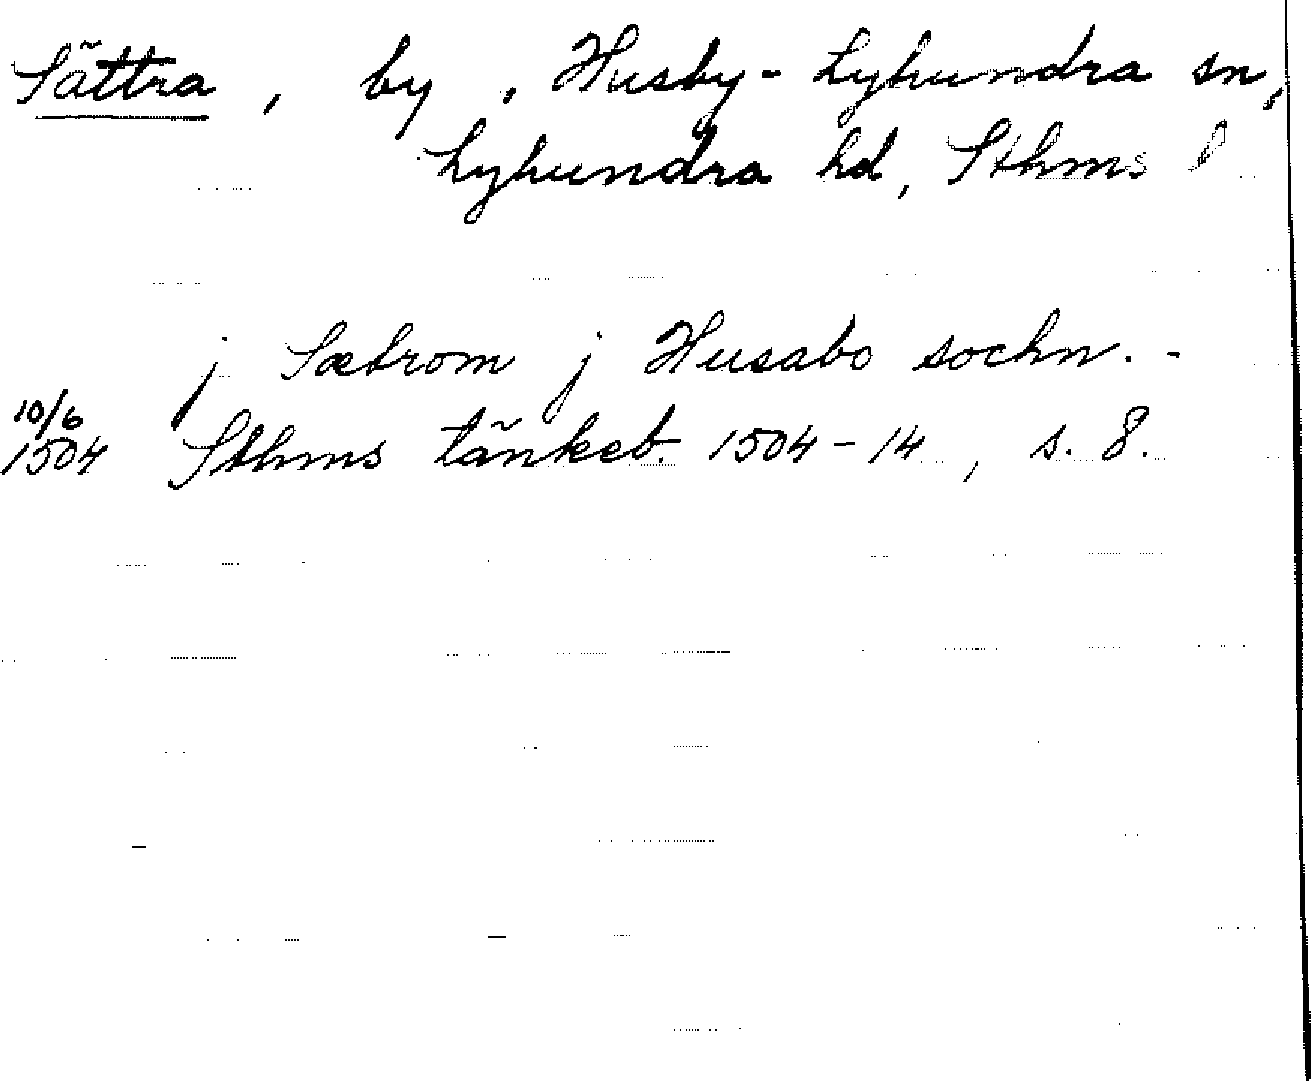 Sättra, by, Husby-Lyhundra sn,
Lyhundra hd, Sthms l
j Sætrom j Husabo sochn. -
10/6
1504 Sthms tänkeb. 1504-14, s. 8.